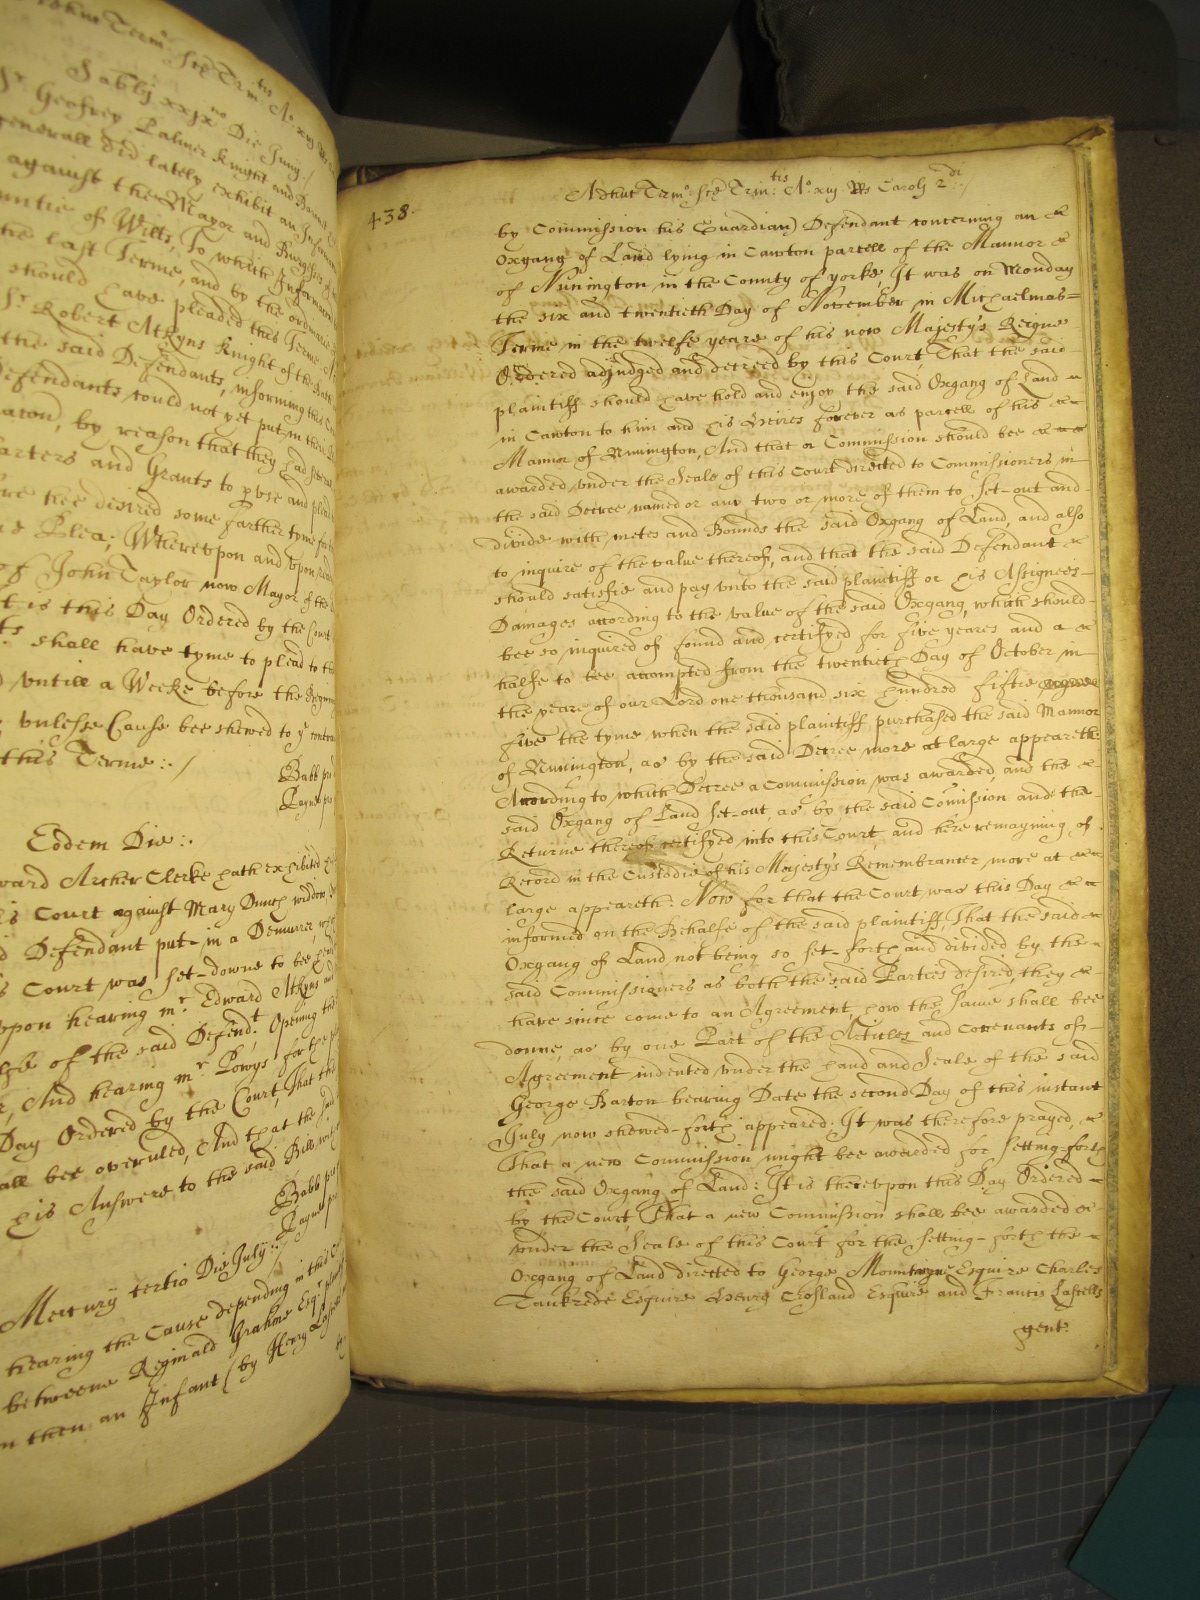 Adhuc Term.o Sce Trin:tis A.o xiij
Sabbij xxix.no Die Junij /
S.r Geofrey Palmer Knight and
generall did lately exhibit an Informacon
against the Mayor and Burgesses
Countie of Wilts, To which Informacon
the last Terme and by the ordinarie
should have pleaded this Terme
S.r Robert Atkyns Knight of the Bath
the said Defendants, informing this Court
Defendants could not yet put in their
by reason that they had several
Charters and Grants to pvse and plead
hee desired some farther tyme for
Plea; Wherevpon and vpon
of John Taylor now Mayor of the
It is this Day Ordered by the Court
shall have tyme to plead to the
vntill a Weeke before the
vnlesse Cause bee shewed to y.e contra
this Terme :. /
Babb
Payne
Eodem Die :.
Edward Archer Clerke hath exhibited
this Court against Mary Dunch widdow
Defendant put-in a Demurrer
Court was set-downe to bee
vpon hearing m.r Edward Atkyns
of the said Defend.t Opening the
And hearing m.r Powys for the
Day Ordered by the Court, That the
shall bee overruled, And that the said
his Answere to the said Bill
Babb
Payne
Mercurij tertio Die July :. /
hearing the Cause depending in this
betweene Reginald Grahme Esq.r
then an Infant (by Henry
438.
Adhuc Term.o Sce Trin:tis A.o xiij Rs Caroli 2.di :. /
by Commission his Guardian) Defendant concerning an &
Oxgang of Land lying in Cawton parcell of the Mannor &
of Nunington in the County of yorke, It was on Monday
the six and twentieth Day of November in Michaelmas=
Terme in the twelfe yeare of his now Majesty's Reigne
Ordered adjudged and decreed by this Court That the said
plaintiff should have hold and enjoy the said Oxgang of Land
in Cawton to him and his Heires forever as parcell of his &
Mannor of Nunington, And that a Commission should bee & &
awarded vnder the Seale of this Court directed to Commissioners in
the said Decree named or any two or more of them to set-out and
divide with metes and Bounds the said Oxgang of Land, and also
to inquire of the value thereof, and that the said Defendant &
should satisfie and pay vnto the said plaintiff or his Assignees
Damages according to the value of the said Oxgang, which should
bee so inquired of found and certifyed for five yeares and a &
halfe to bee accompted from the twentieth Day of October in
the yeare of our Lord one thousand six hundred fiftie
five the tyme when the said plaintiff purchased the said Mannor
of Nunington, as by the said Decree more at large appeareth
According to which Decree a Commission was awarded and the &
said Oxgang of Land set-out as by the said Comission and the
Returne thereof certifyed into this Court and here remayning of
Record in the Custodie of his Majesty's Remembrancer more at &
large appeareth: Now for that the Court was this Day &
informed on the Behalfe of the said plaintiff, That the said
Oxgang of Land not being so set-forth and divided by the
said Commissioners as both the said Parties desired they &
have since come to an Agreement, how the same shall bee
donne, as by one Part of the Articles and Covenants of
Agreement indented vnder the hand and Seale of the said
George Barton bearing Date the second Day of this instant
July now shewed-forth appeared: It was therefore prayed, &
That a new Commission might bee awarded for setting-forth
the said Oxgang of Land: It is therevpon this Day Ordered
by the Court That a new Commission shall bee awarded &
vnder the Seale of this Court for the setting-forth the
Oxgang of Land directed to George Mountayne Esquire Charles
Tankrede Esquire Henry Crosland Esquire and Francis Lassells
gent: